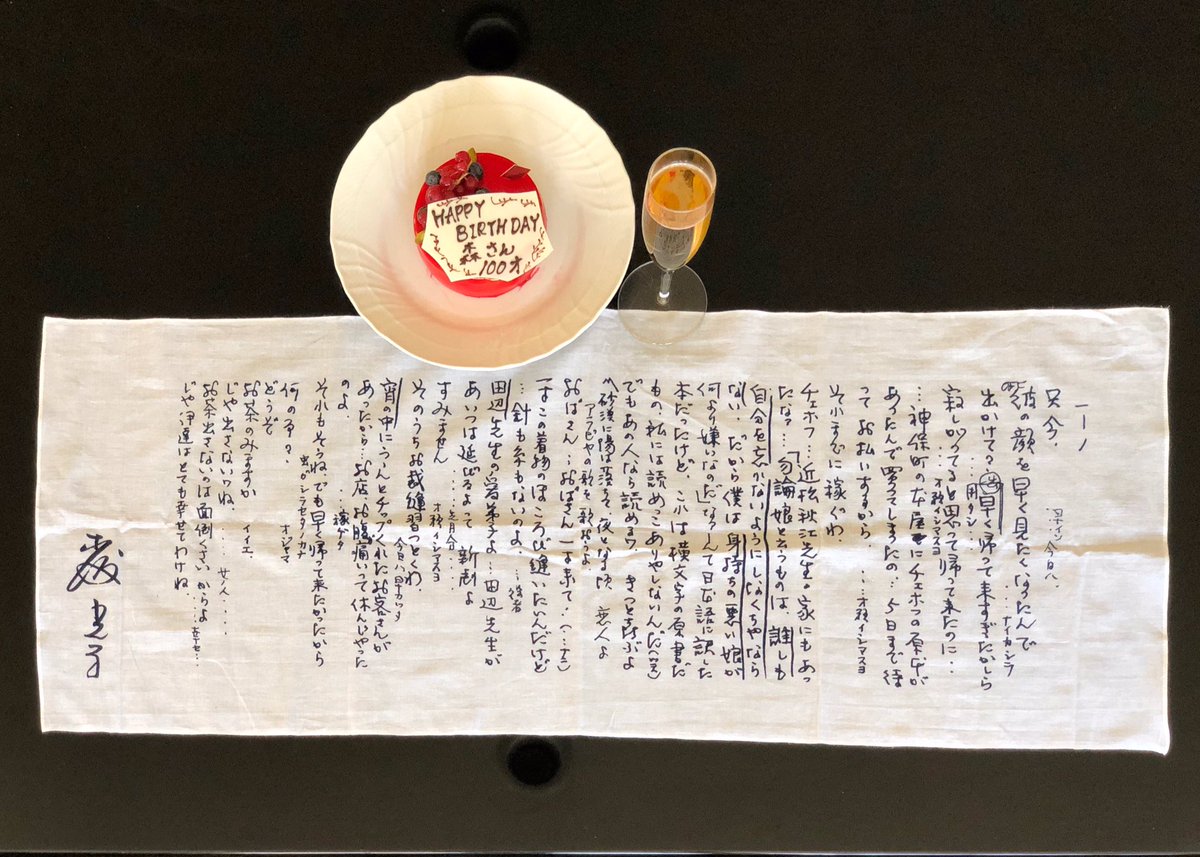 HAPPY
BIRTHDAY
森さん
100才
一ノ
只今、
今日ハ
彼の顔を早く見たくなったんで
出かけて?早く帰って来すぎたかしら
寂しがってると思って帰って来たのに…
…神保町の本屋にチェホフの原本が
あったんで買ってしまたの…5日まで待
って お払いするから…
それまでに稼ぐわ。
チェホフ…近松秋江先生の家にもあっ
たなァ…「勿論娘と云うものは、誰しも
自分を忘れないようにしなくちゃなら
ない、だから僕は身持ちの悪い娘が
何より嫌いなのだ」なァーんて日本語に訳した
本だったけど、これは横文字の原書だ
もの、私には読めっこありやしないんだ(笑)
でもあの人なら読める、きっと喜ぶよ
砂漠に陽は落ちて 夜となる頃 恋人よ
アラビヤの歌を 歌おうよ
おばさん…おばさん 一寸来て!
一寸この着物のほころび縫いたいんだけど
…針も糸もないのよ、
田辺先生の署名よ…田辺先生が
あいつは延びるよって 新劇よ
すみません
先月分
そのうちお裁縫習っとくわ
宵の中にうんとチップくれたお客さんが
あったから…お店、お腹痛いって休んじゃった
のよ、
それもそうね、でも早く帰って来たかったから
何のる?
オジャマ
どうぞ
お茶のみますか
イイエ、
じゃ出さないワね、
お茶出さないのは面倒くさいからよ
じゃ伊達はとても幸せってわけね
光子